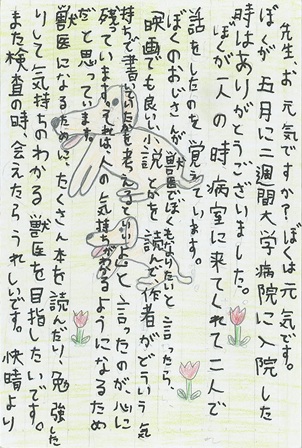 先生、お元気ですか？ぼくは元気です。
ぼくが五月に二週間大学病院に入院した
時はありがとうございました。
ぼくが一人の時病室に来てくれて二人で
話をしたのを覚えています。
ぼくのおじさんが獣医でぼくもなりたいと言ったら、
「映画でも良い小説とかを読んで、作者がどういう気
持ちで書いたかを考えるといいよ」と言ったのが心に
残っています。それは人の気持ちがわかるようになるため
だと思っています。
獣医になるために、たくさん本を読んだり、勉強した
りして気持ちのわかる獣医を目指したいです。
また検査の時、会えたらうれしいです。快晴より